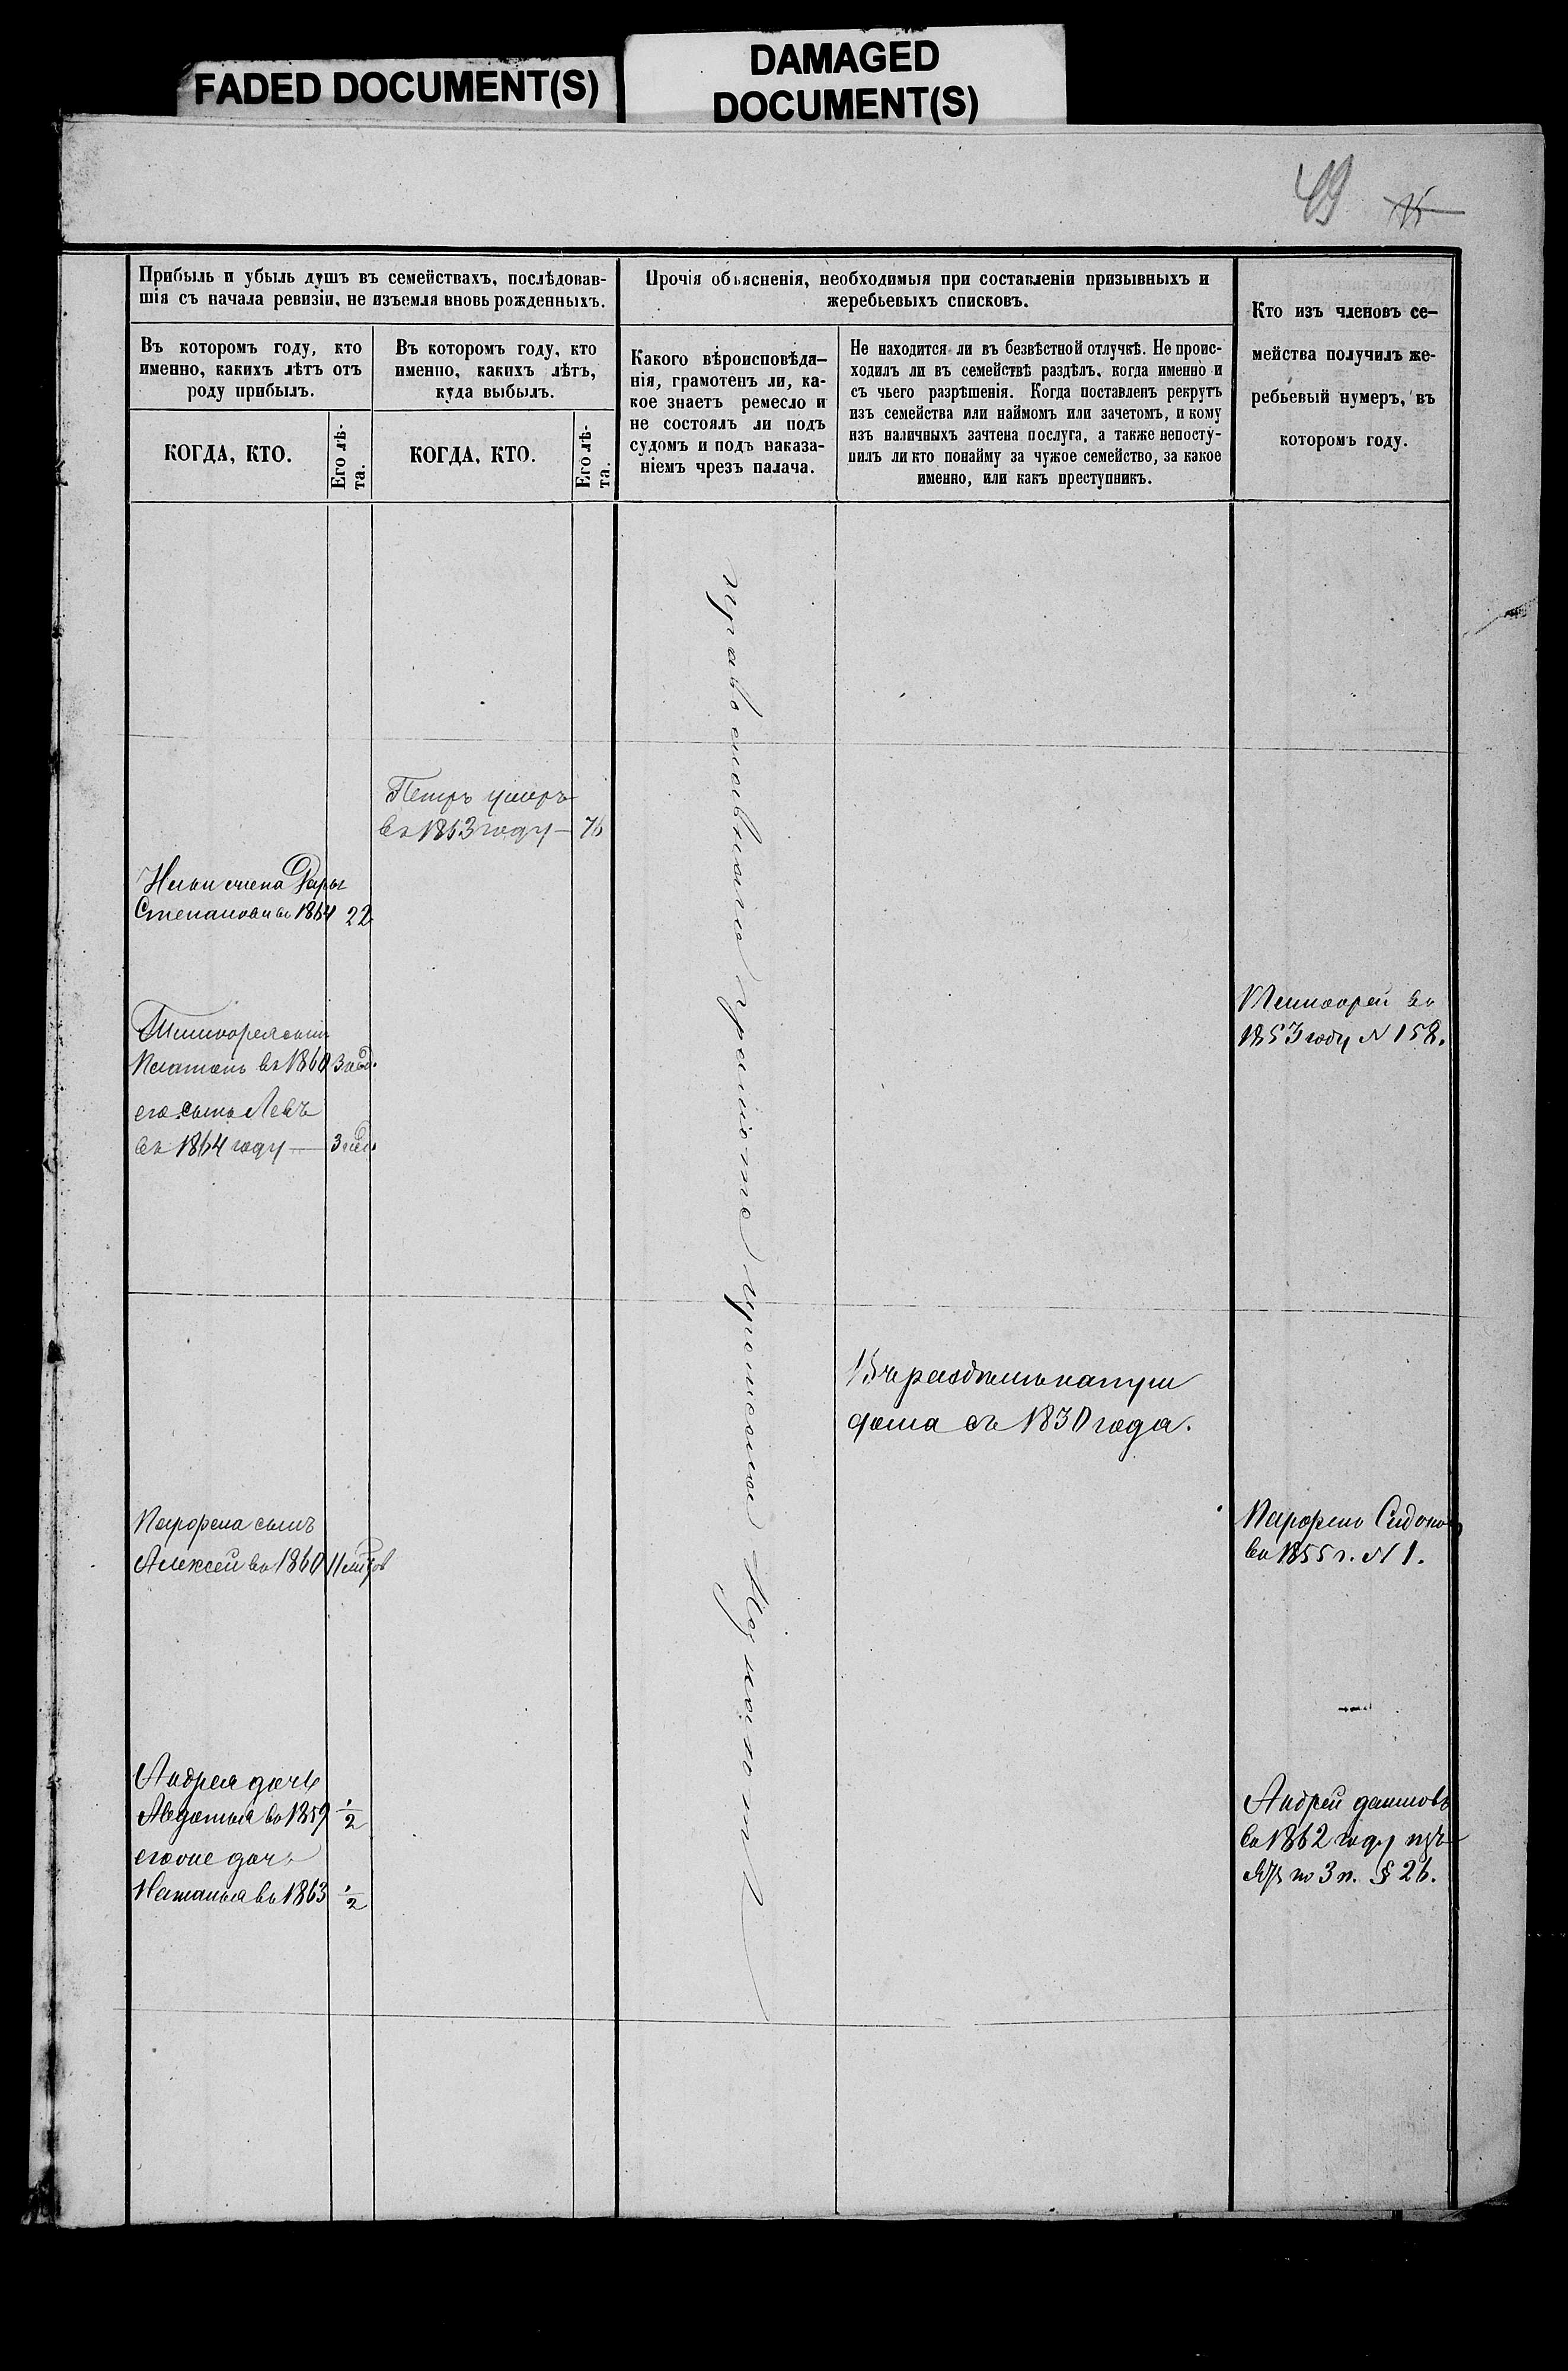 FADED DOCUMENT(S)
DAMAGED
DOCUMENT(S)
49
15
Прибыль и убыль душъ въ семействахъ, послѣдовав-
шія съ начала ревизіи, не изъемля вновь рожденныхъ.
Въ которомъ году, кто
именно, какихъ лѣтъ отъ
роду прибылъ.
КОГДА, КТО.
Его лѣ-
та.
Въ которомъ году, кто
именно, какихъ лѣтъ,
куда выбылъ.
КОГДА, КТО.
Его лѣ-
та.
Прочія объясненія, необходимыя при составленіи призывныхъ и
жеребьевыхъ списковъ.
Какого вѣроисповѣда-
нія, грамотенъ ли, ка-
кое знаетъ ремесло и
не состоялъ ли подъ
судомъ и подъ наказа-
ніемъ чрезъ палача.
Не находится ли въ безвѣстной отлучкѣ. Не проис-
ходилъ ли въ семействѣ раздѣлъ, когда именно и
съ чьего разрѣшенія. Когда поставленъ рекрутъ
изъ семейства или наймомъ или зачетомъ, и кому
изъ наличныхъ зачтена послуга, а также непосту-
пилъ ли кто понайму за чужое семейство, за какое
именно, или какъ преступникъ.
Кто изъ членовъ се-
мейства получилъ же-
ребьевый нумеръ, въ
которомъ году.
Петръ умеръ
въ 1863 году — 76
жена Дарья
Степанова въ 1864 22
Тимоофея сынъ
Платонъ въ 1860 3 нед.
его сынъ Левъ
въ 1864 году — 3 нед.
Тимоофей въ
1853 году N 158.
Въ раздѣлѣ на три
дома съ 1830 года.
Парфена сынъ
Алексей въ 1860
Парфенъ Сидоровъ
въ 1855 г. N 1.
Андрея дочь
Авдотья въ 1859 1/2
его же дочь
Наталья въ 1863 1/2
Андрей
въ 1862 году изъ
по 3 п. § 26.